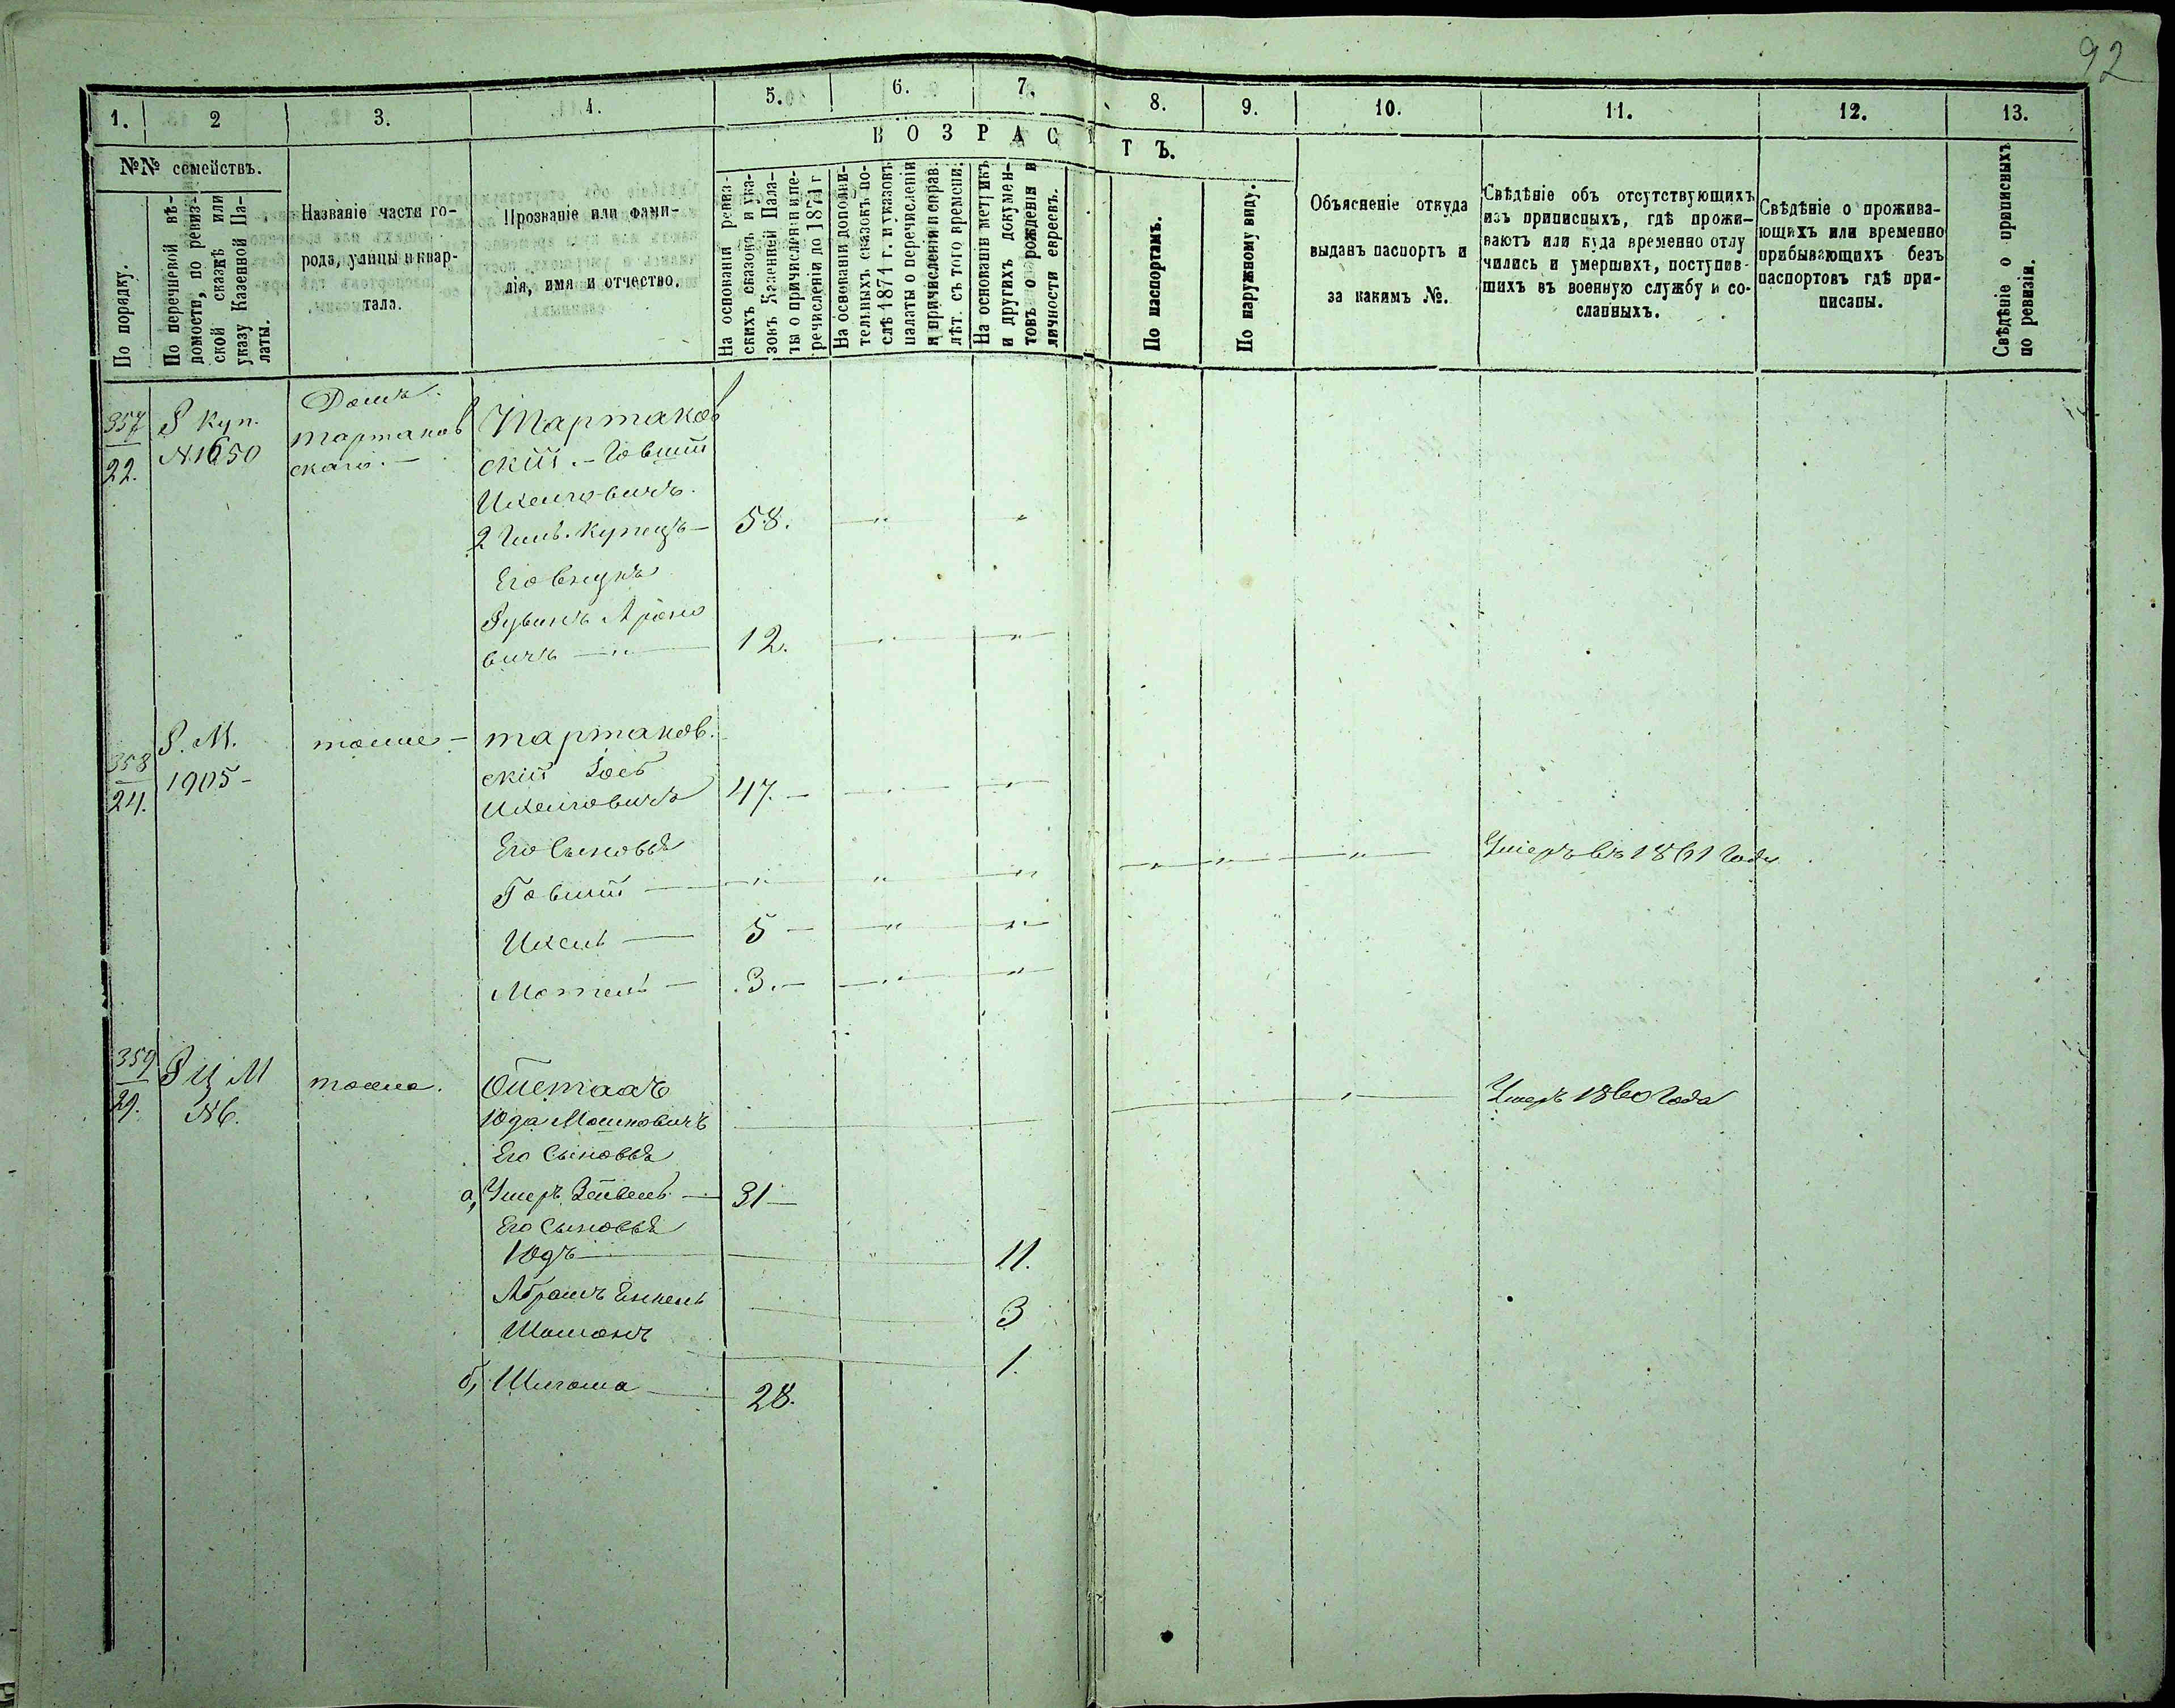 92
1. 2 3. 4. 5. 6. 7. 8. 9. 10. 11. 12. 13.
ВОЗРАСТЪ.
№№ семействъ.
По порядку.
По перечневой вѣ-
домости, по ревиз-
ской сказкѣ или
указу Казенной Па-
латы.
Названіе части го-
рода, улицы и квар-
тала.
Прозваніе или фами-
лія, имя и отчество.
На основаніи ревиз-
скихъ сказокъ и ука-
зокъ Казенной Пала-
ты о причисленіи и пе-
речисленіи до 1874 г
На основаніи дополни-
тельныхъ сказокъ по-
слѣ 1874 г. и указовъ
палаты о перечисленіи
и причисленіи и справ.
лѣт. съ того времени.
На основаніи метрикъ
и другихъ докумен-
товъ о рожденіи и
личности евреевъ.
По паспортамъ.
По наружному виду.
Объясненіе откуда
выданъ паспортъ и
за какимъ №.
Свѣдѣніе объ отсутствующихъ
изъ приписныхъ, гдѣ прожи-
ваютъ или куда временно отлу
чились и умершихъ, поступив-
шихъ въ военную службу и со-
сланныхъ.
Свѣдѣніе о прожива-
ющихъ или временно
прибывающихъ безъ
паспортовъ гдѣ при-
писаны.
Свѣдѣніе о приписныхъ
по ревизіи.
357
22.
Р Куп.
№1650
Домъ
тартаков
скаго.—
Тартаков
скій.—Говшій
Ихелговичъ.
2 Гиль. Купецъ— 58. " "
Его внукъ
Рувинъ Ароно
вичъ —"— 12. " "
358
24.
Р. М.
1905-
тоже-
тартаков.
скій Іось
Ихелговичъ 47.— " "
Его Сыновья
Говшій — " " " " " " Умеръ въ 1861 Году
Ихель — 5— " "
Мотель — .3.— " "
359
29.
Р Ц М
№6.
тоже.
Юда Мошковичъ " Умеръ 1860 Года
Его Сыновья
а, Ушеръ Зейвель — 31—
Его Сыновья
Юдъ " 11.
Абрамъ Енкель 3
Шоломъ 1.
б, Шлгома 28.